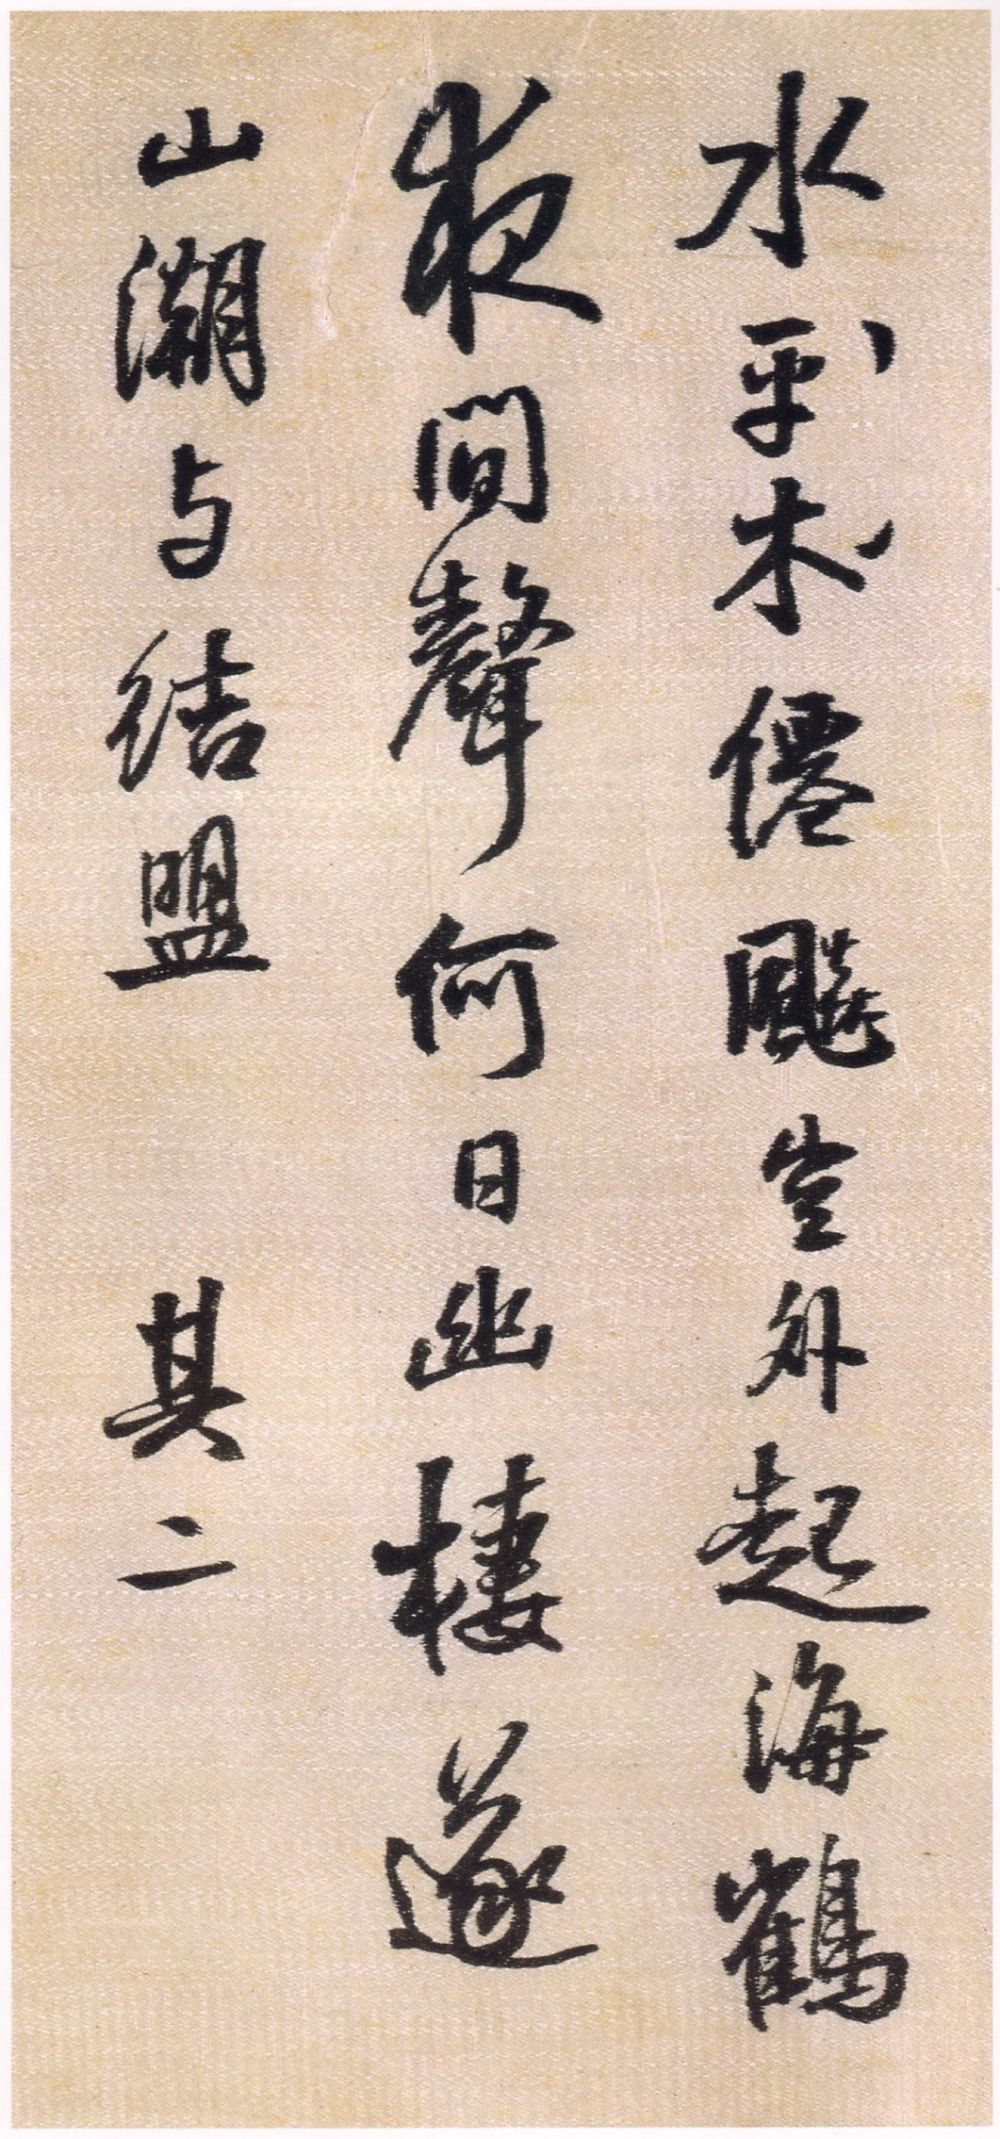 水平木僊飈空外起海鶴
夜間聲何日幽棲遂
山潮与結盟 其二